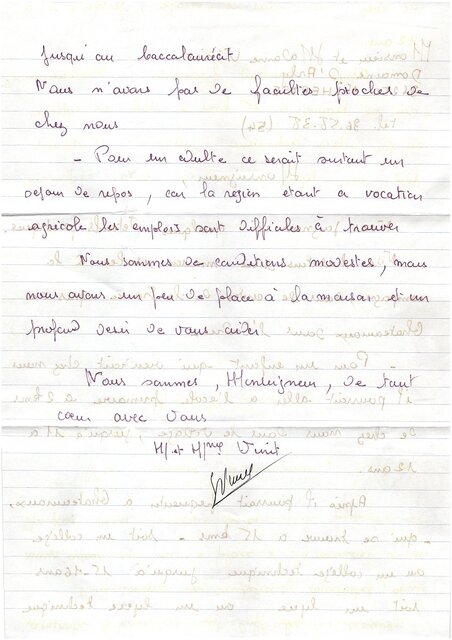 jusqu'au baccalauréat
Nous n'avons pas de facultés proches de
chez nous
- Pour un adulte ce serait surtout un
séjour de repos, car la région étant à vocation
agricole les emplois sont difficiles à trouver
Nous sommes de conditions modestes, mais
nous avons un peu de place à la maison et un
profond desir de vous aider
Nous sommes, Monseigneur, de tout
cœur avec vous
M et Mme